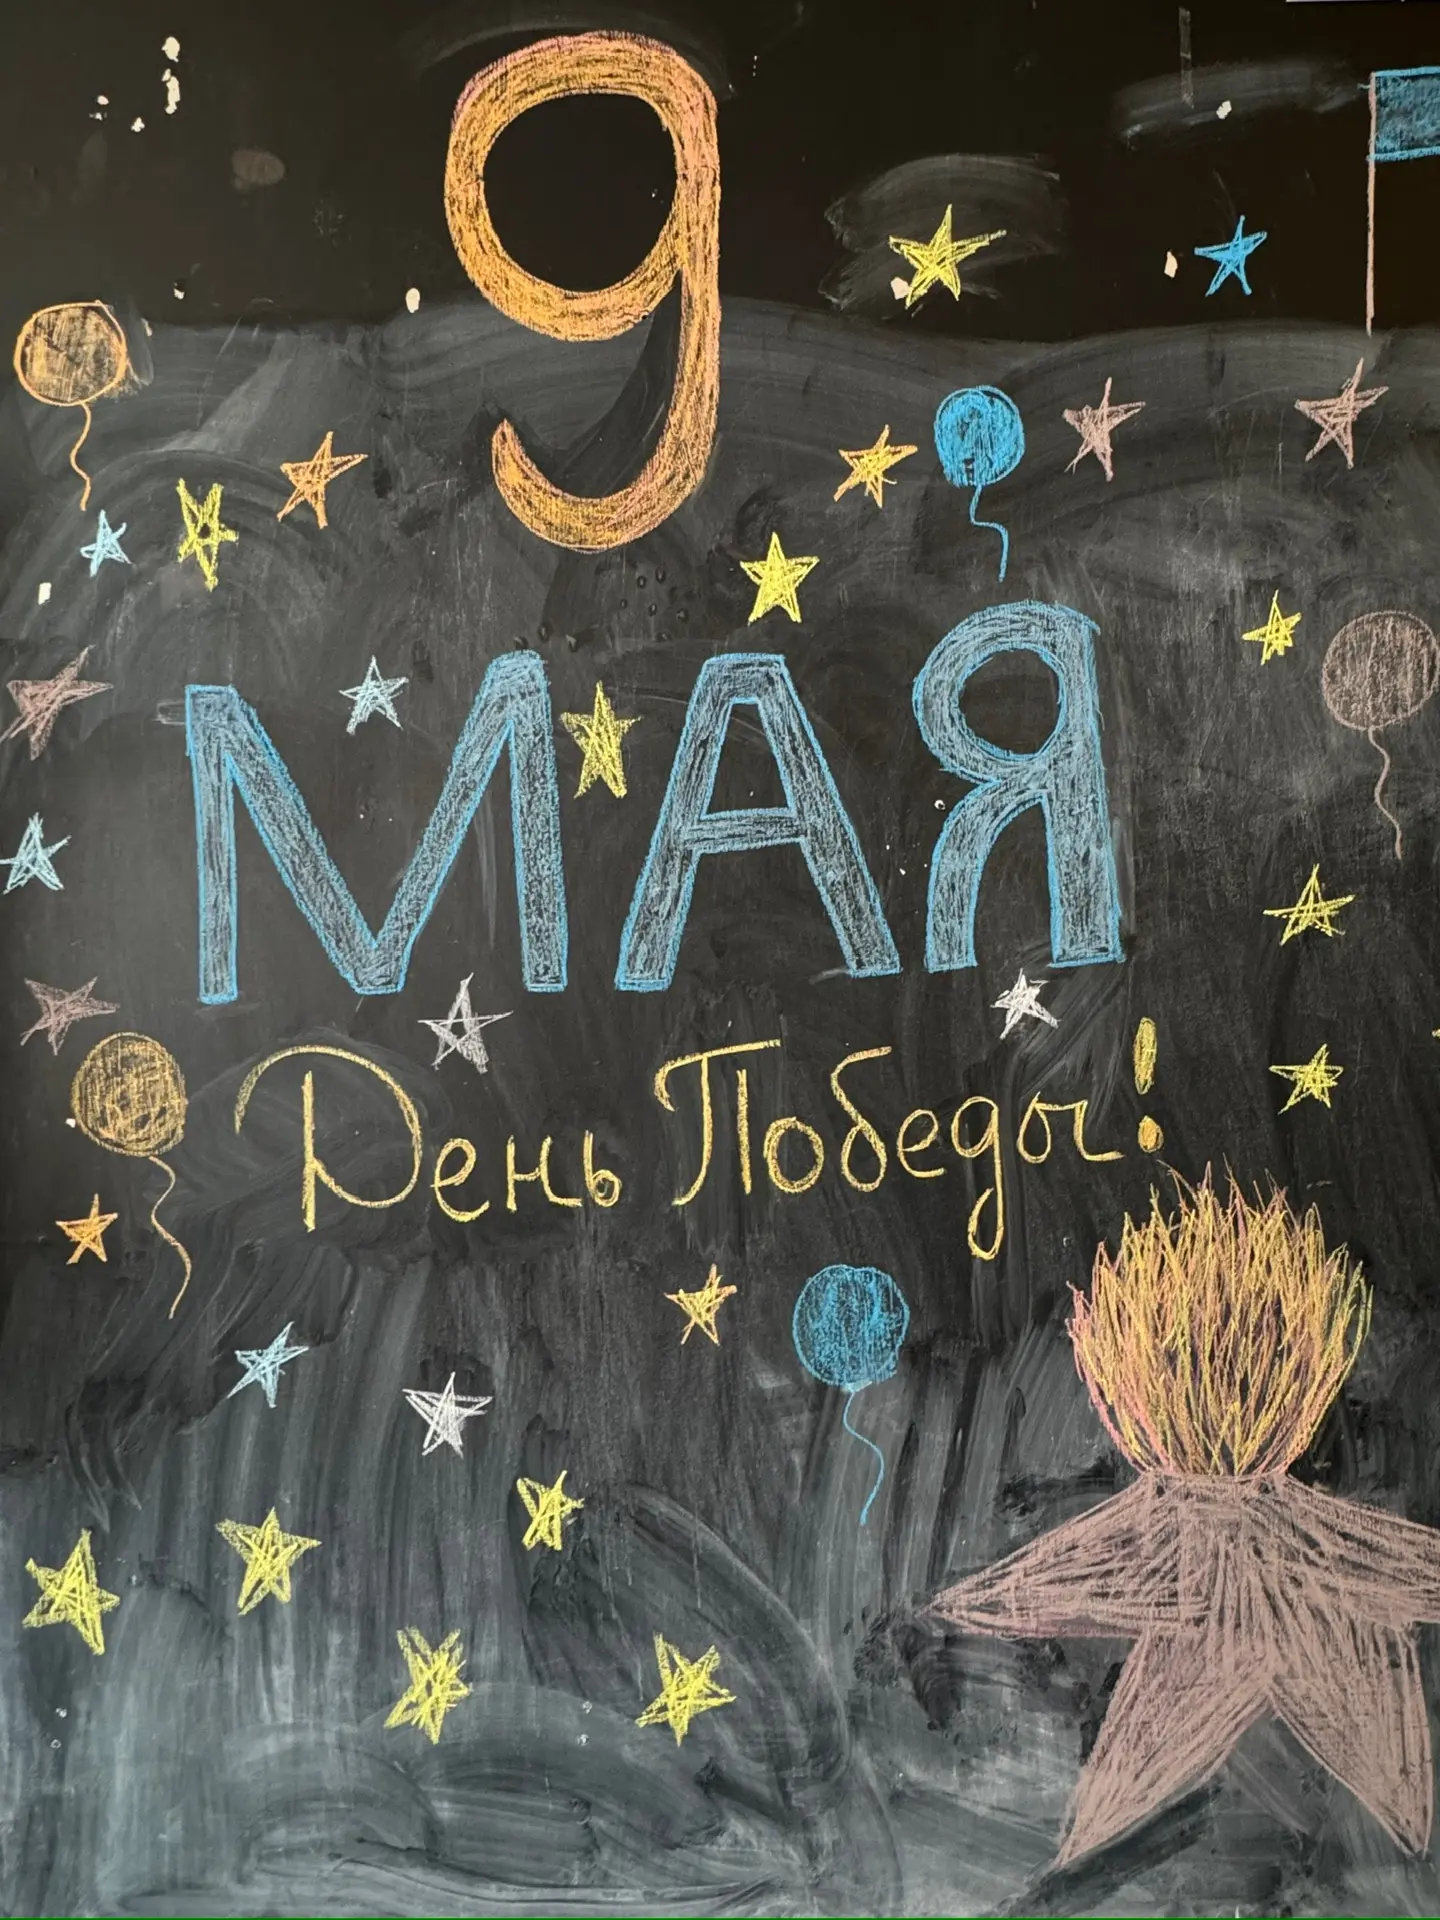 9
МАЯ
День Победы!